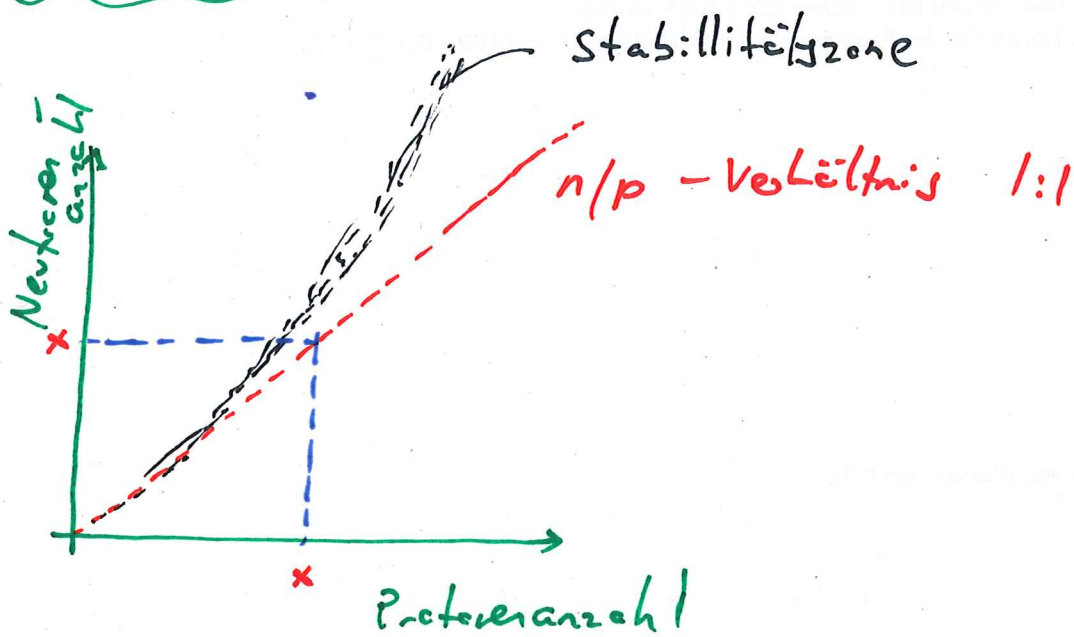 Stabillitätszone
n/p - Verhältnis 1:1
Neutronen
anzahl
x
x
Protonenanzahl